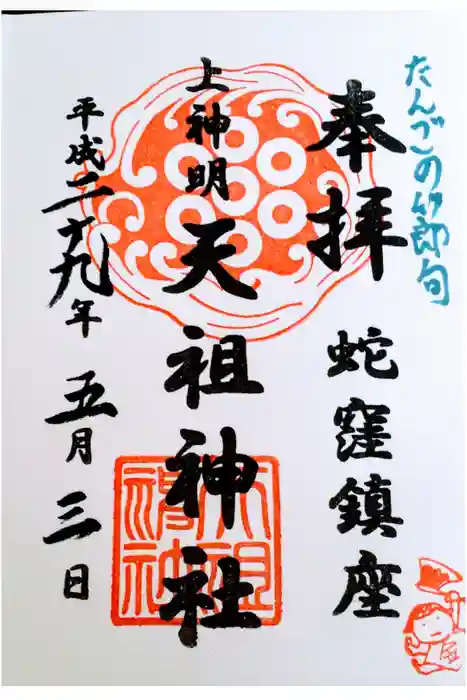 たんごの節句
奉拝
蛇窪鎮座
上神明
天祖神社
平成二十九年
五月
三日
天祖神社